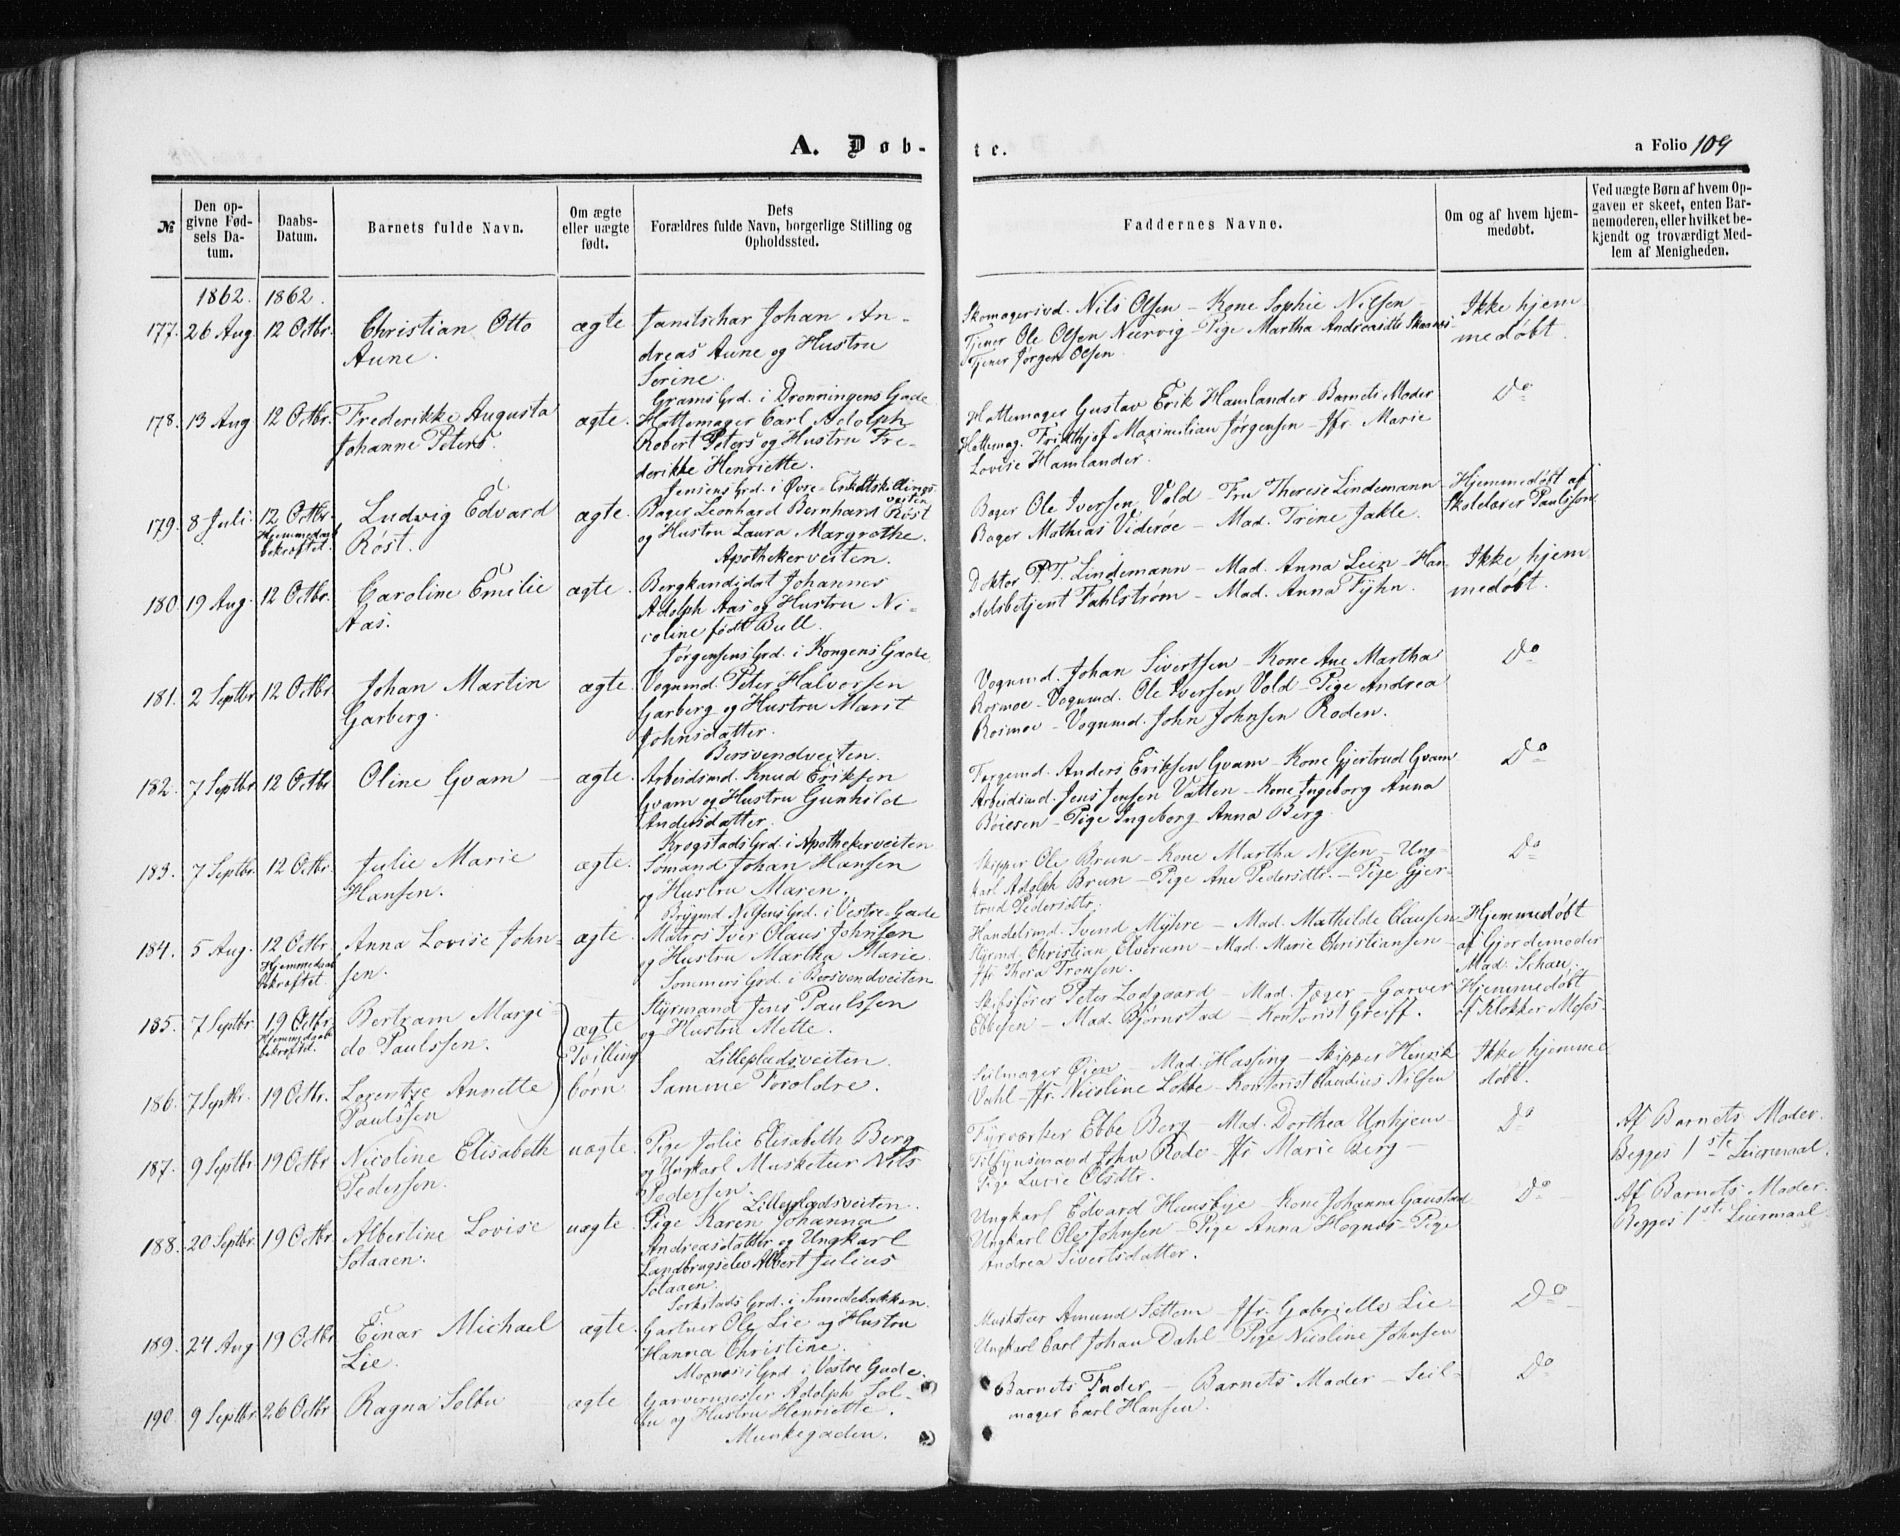 A. Døb-
te.
a Folio 109
№
Den op-
givne Fød-
sels Da-
tum.
Daabs-
Datum.
Barnets fulde Navn.
Om ægte
eller uægte
født.
Dets
Forældres fulde Navn, borgerlige Stilling og
Opholdssted.
Faddernes Navne.
Om og af hvem hjem-
medøbt.
Ved uægte Børn af hvem Op-
gaven er skeet, enten Bar-
nemoderen, eller hvilket be-
kjendt og troværdigt Med-
lem af Menigheden.
1862. 1862.
177. 26 Aug 12 Octbr.
Christian Otto
Aune.
ægte
Janitschar Johan An-
dreas Aune og Hustru
Serine.
Grams Grd. i Dronningens Gade
Skomagersvd. Nils Olsen - Kone Sophie Nilsen -
Tjener Ole Olsen Nervig - Pige Martha Andreasdtr
Tjener Jørgen Olsen.
Ikke hjem
medøbt.
178. 13 Aug 12 Octbr.
Frederikke Augusta
Johanne Peters.
ægte.
Hattemager Carl Adolph
Robert Peters og Hustru Fre-
derikke Henriette.
Jensens Grd. i Øvre-Enkeltskillings
veiten
Hattemager Gustav Erik Hamlander Barnets Moder
Hattemag. Frithjof Maximilian Jørgensen - Jfr Marie
Lovise Hamlander.
Do
179. 8 Juli 12 Octbr.
Hjemmedaab
bekræftet.
Ludvig Edvard
Röst.
ægte.
Bager Leonhard Bernhard Röst
og Hustru Laura Margrethe.
Apothekerveiten.
Bager Ole Iversen Vold - Fru Therese Lindemann -
Bager Mathias Viderøe - Mad. Trine Jakle.
Hjemmedøbt af
Skolelærer Paulsson
180 19 Aug. 12 Octbr.
Caroline Emilie
Aas.
ægte.
Bergkandidat Johannes
Adolph Aas og Hustru Ni-
coline født Bull.
Jørgensens Grd. i Kongens Gade.
Doktor P. T. Lindemann - Mad. Anna Lein - Han
delsbetjent Fahlstrøm - Mad. Anna Fyhn.
Ikke hjem
medøbt.
181. 2 Septbr 12 Octbr
Johan Martin
Garberg.
ægte.
Vognmd. Peter Halvorsen
Garberg og Hustru Marit
Johnsdatter.
Bersvendveiten.
Vognmd. Johan Sivertsen - Kone Ane Martha
Rosmoe - Vognmd. Ole Iversen Vold - Pige Andrea
Rosmoe - Vognmd. John Johnsen Roden.
Do
182. 7 Septbr 12 Octbr
Oline Gvam -
ægte.
Arbeidsmd. Knud Eriksen
Gvam og Hustru Gunhild
Andersdatter.
Krogstads Grd. i Apothekerveiten
Torgemd. Anders Eriksen Gvam - Kone Gjertrud Gvam
Arbeidsmd. Jens Jensen Vatten - Kone Ingeborg Anna
Böiesen - Pige Ingeborg Anna Berg.
Do
183. 7 Septbr. 12 Octbr.
Julie Marie
Hansen.
ægte.
Sømand Johan Hansen
og Hustru Maren.
Brygmd Nilsens Grd. i Vestre-Gade
Skipper Ole Brun - Kone Martha Nilsen - Ung-
karl Adolph Brun - Pige Ane Pedersdtr. - Pige Gjer-
trud Pedersdtr.
Do
184. 5 Aug. 12 Octbr
Hjemmedaab
bekræftet.
Anna Lovise John-
sen.
ægte.
Matros Iver Olaus Johnsen
og Hustru Martha Marie.
Sommers Grd. i Bersvendveiten
Handelsmd. Svend Myhre - Mad. Mathilde Clausen -
Styrmd. Christian Elverum - Mad. Marie Christiansen -
Jfr Thora Tronsen.
Hjemmedøbt
af Gjordemoder
Mad. Schau.
185. 7 Septbr. 19 Octbr.
Hjemmedaab
bekræftet.
Bertram Margi-
do Paulssen.
ægte
Tvilling
Styrmand Jens Paulssen
og Hustru Mette.
Lillepladsveiten.
Skibsfører Peter Lodgaard - Mad. Jæger - Garver
Ebbesen - Mad. Bjørnstad - Kontorist Greiff.
Hjemmedøbt
af Klokker Moses
186. 7 Septbr. 19 Octbr.
Lorentze Annette
Paulssen
børn
Samme Foroldre.
Seilmager Øien - Mad. Hassing - Skipper Henrik
Dahl - Jfr. Nicoline Løkke - Kontorist Claudius Nilsen
Ikke hjemme
døbt.
187. 9 Septbr 19 Octbr
Nicoline Elisabeth
Pedersen.
uægte.
Pige Julie Elisabeth Berg
og Ungkarl Musketer Nils
Pedersen.
Lillepladsveiten.
Fyrværker Ebbe Berg - Mad. Dorthea Unhjem -
Tilsynsmand John Rode - Jfr Marie Berg -
Pige Lucie Olsdtr.
Do
Af Barnets Moder.
Begges 1ste Leiermaal.
188. 20 Septbr. 19 Octbr.
Albertine Lovise
Solaaen.
uægte
Pige Karen Johanna
Andreasdatter og Ungkarl
Landbrugselev Albert Julius
Solaaen.
Sorkstads Grd. i Smedebakken.
Ungkarl Edvard Huusbye - Kone Johanna Gaustad
Ungkarl Ole Johnsen - Pige Anna Hognes - Pige
Andrea Sivertsdatter.
Do
Af Barnets Moder.
Begges 1ste Leiermaal.
189. 24 Aug 19 Octbr
Einar Michael
Lie.
ægte.
Gartner Ole Lie og Hustru
Hanna Christine.
Grd. i Vestre Gade.
Musketeer Amund Sættem - Jfr. Gabrielle Lie -
Ungkarl Carl Johan Dahl - Pige Nicoline Johnsen
Do
190 9 Septbr. 26 Octbr
Ragna Solbu
ægte
Garvermester Adolph Sol-
bu og Hustru Henriette.
Munkegaden.
Barnets Fader - Barnets Moder - Seil-
mager Carl Hansen.
Do